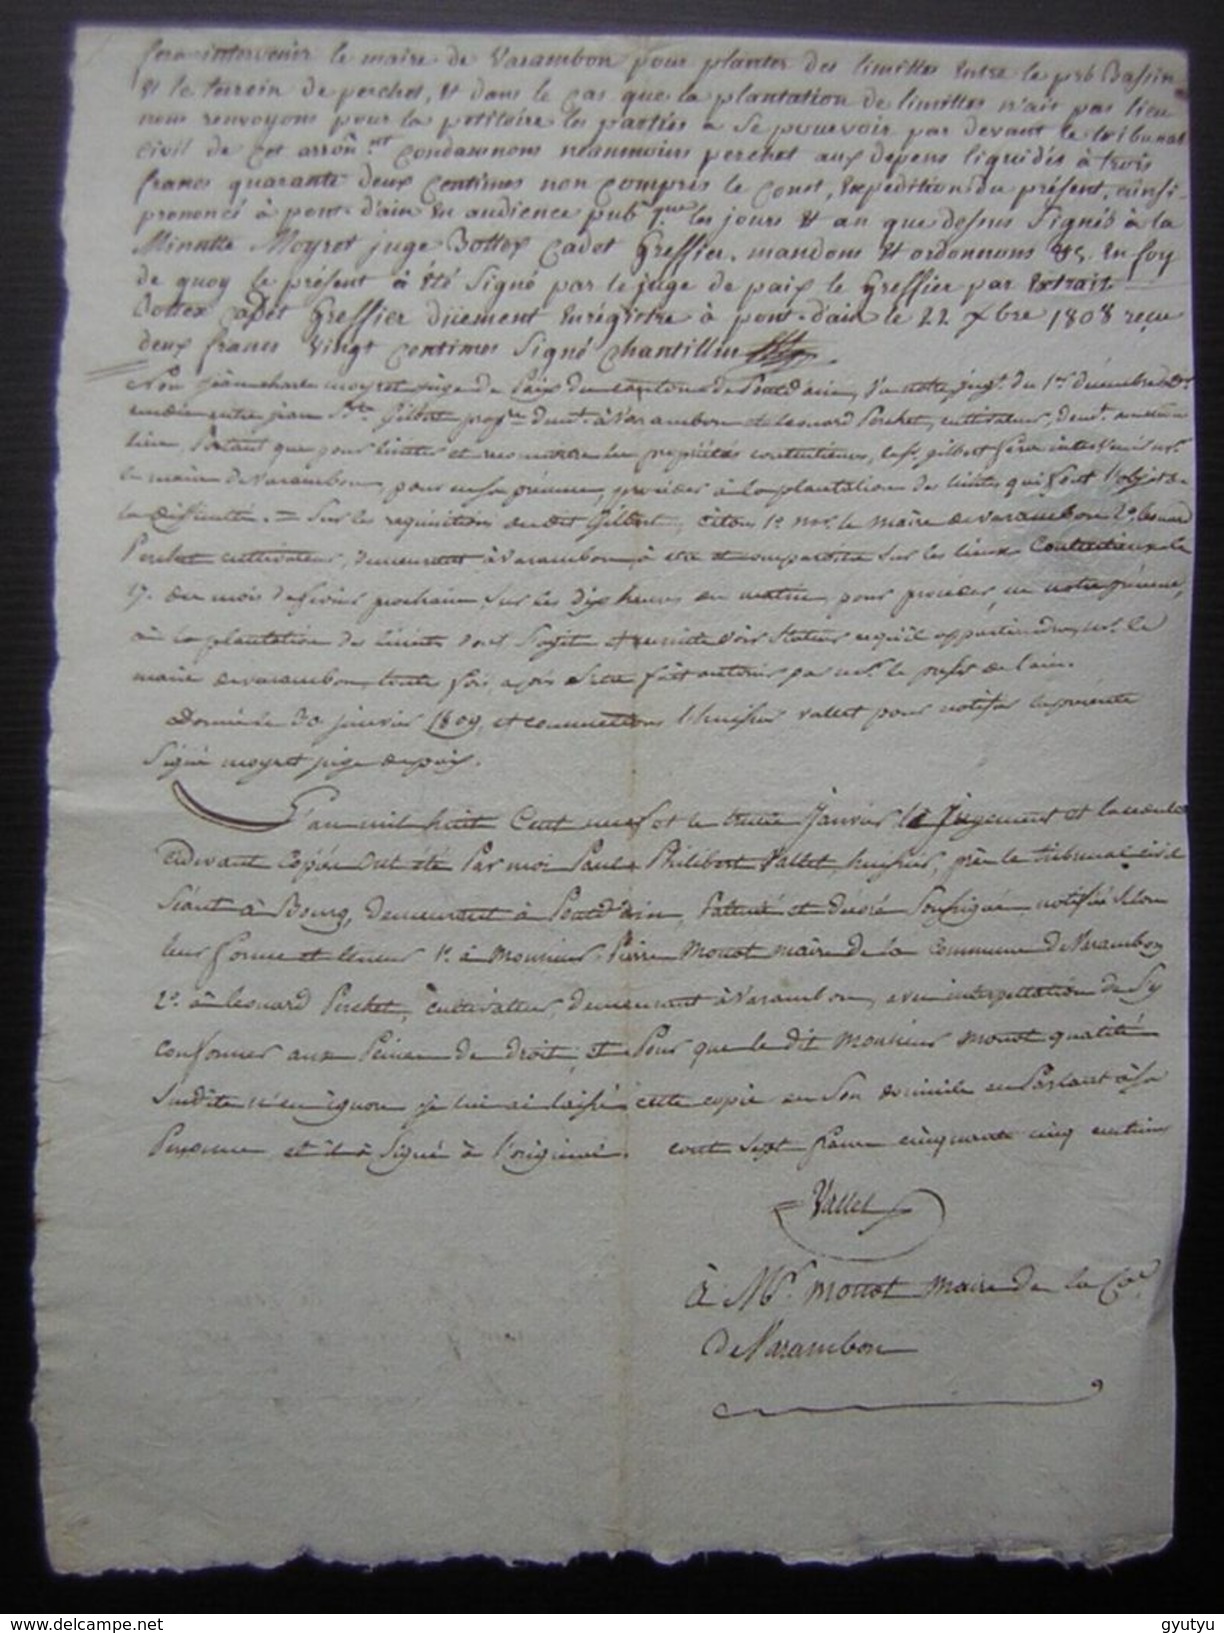 fera intervenir le maire de Varambon pour planter des limittes entre le prb Bassin
& le terrein de perchet, & dans le cas que la plantation de limittes n'ait pas lieu
nous renvoyons pour la petitoire les parties a se pourvoir par devant le tribunal
civil de cet arron.nt Condamnons neanmoins perchet aux depens liquidés à trois
francs quarante deux Centimes non compris le cout, expédition du présent, ainsi
prononcé à pont-d'ain en audience pub.que les jours & an que dessus Signés à la
Minutte Moyret juge Bottex Cadet Greffier. mandons & ordonnons &c. en foy
de quoy le présent à été Signé par le juge de paix le Greffier par Extrait
Bottex Cadet Greffier düement enrégistré à pont-d'ain le 22 xbre 1808 reçu
deux francs vingt Centimes Signé Chantillin
Nou jean moyret juge de Paix du canton de Pontd'ain, Vu notre jugt. du 1er décembre
entre jean Bte. Gilbert propre demt. à Varambon et Leonard Perchet, cultivateur, demt. au même
lieu, Portant que pour limiter et les propriétés contentieuses, led. gilbert fera intervenir mr.
le maire de Varambon, pour en sa présence, procéder à la plantation des limites qui font l'objet de
la difficulté. = Sur les requisitions du dit Gilbert, citons 1o. mr. le maire de Varambon 2o. Leonard
Perchet cultivateur, demeurant à Varambon, à être et comparoître sur les lieux Contentieux le
17. du mois de fevrier prochain, sur les dix heures du matin, pour procéder, en notre présence,
à la plantation des limites dont s'agit et ensuite voir statuer ce qu'il appartiendra, mr. le
maire de varambon, toute fois, après s'etre fait autoriser par mr. le prefet de l'ain.
Donné le 30 janvier 1809, et commettons l'huissier vallet pour notifier la présente
Signé moyret juge de paix.
L'an mil huit Cent neuf et le trente Janvier le Jugement et la cedule
cidevant copiée ont été Par moi Paul Philibert Vallet, huissier, près le tribunal civil
Séant à Bourg, demeurant à Pontd'ain, Patenté et Soussigné, notifiés Selon
leur forme et teneur 1o. à Monsieur Pierre Monot maire de la Commune de Varambon
2o. à Leonard Perchet, cultivateur, demeurant à Varambon, avec interpellation de S'y
conformer aux Peines de droit, et Pour que le dit Monsieur Monot qualité
Susdite n'en ignore je lui ai laissé cette copie en Son domicile en Parlant à sa
Personne et il à Signé à l'original. cout Sept francs cinquante cinq centimes
Vallet
à Mr. Monot Maire de la Cne.
de Varambon
delcampe.net
gyutyu